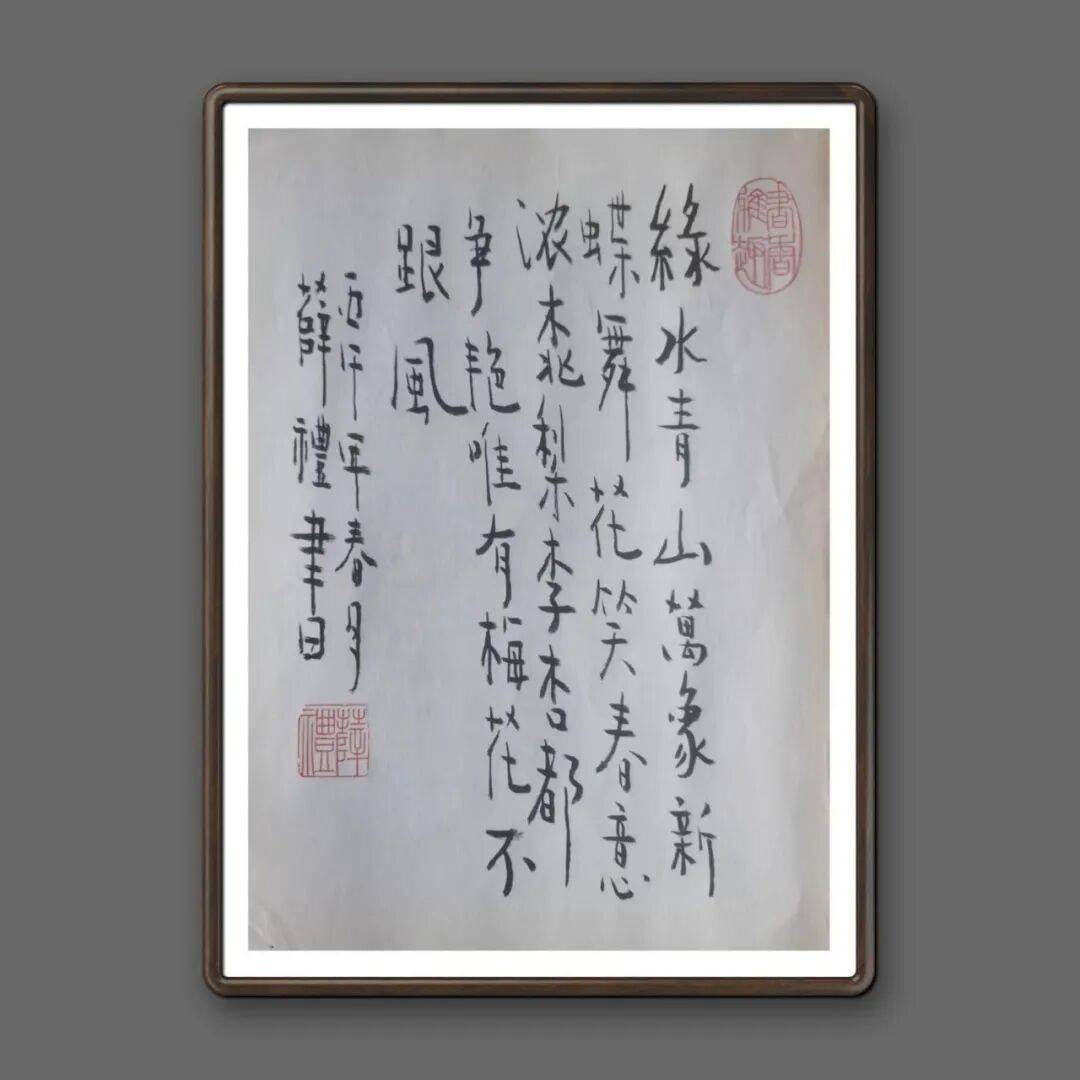 綠水青山萬象新
蝶舞花笑春意
浓桃梨李杏都
争艳唯有梅花不
跟風
丙午年春月
薛禮書日
薛禮
書香